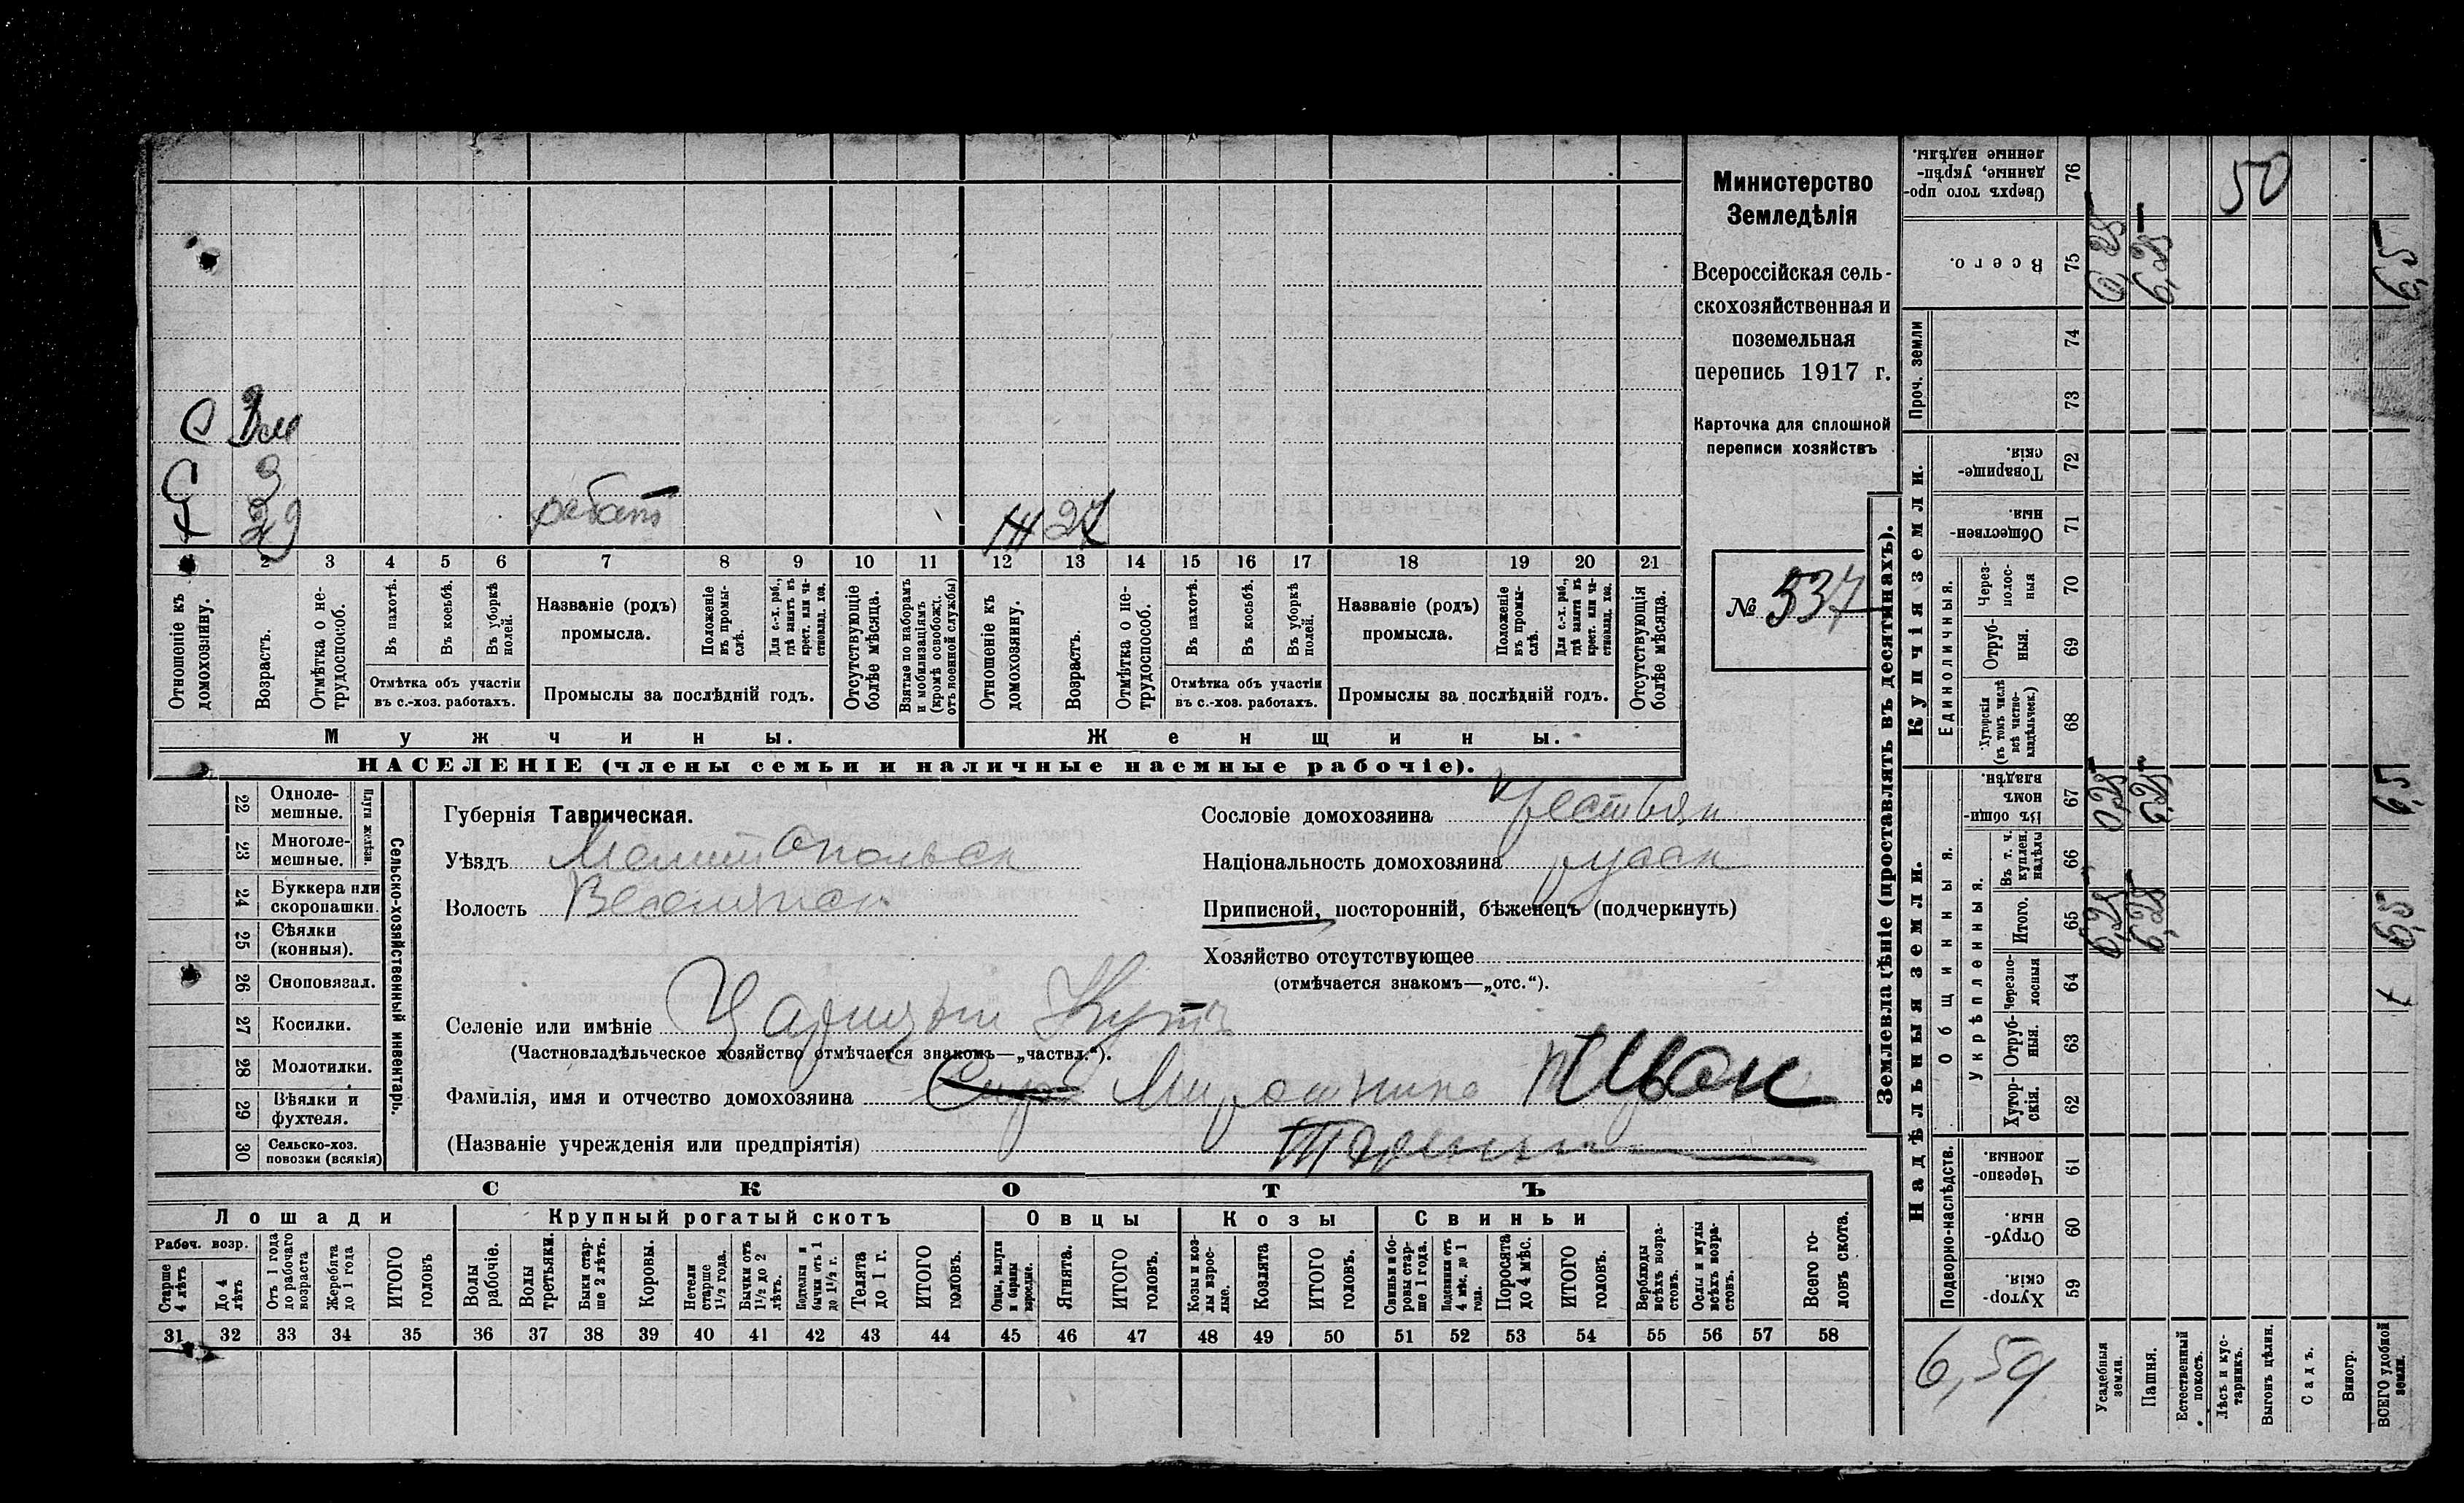 Министерство
Земледѣлія
Всероссійская сель-
скохозяйственная и
поземельная
перепись 1917 г.
Карточка для сплошной
переписи хозяйствъ
№ 537
С 3 м
С 3
Х 29 работ
Ж 27
1 2 3 4 5 6 7 8 9 10 11 12 13 14 15 16 17 18 19 20 21
Отношеніе къ домохозяину.
Возрастъ.
Отмѣтка о не-трудоспособ.
Въ пахотѣ.
Въ косьбѣ.
Въ уборкѣ полей.
Отмѣтка объ участіи въ с.-хоз. работахъ.
Названіе (родъ) промысла.
Положеніе въ промы-слѣ.
Для с.-х. раб., гдѣ занятъ въ крест. или ча-стновлад. хоз.
Промыслы за послѣдній годъ.
Отсутствующіе болѣе мѣсяца.
Взятые по наборамъ и мобилизаціямъ (кромѣ освобожд. отъ военной службы)
Отношеніе къ домохозяину.
Возрастъ.
Отмѣтка о не-трудоспособ.
Въ пахотѣ.
Въ косьбѣ.
Въ уборкѣ полей.
Отмѣтка объ участіи въ с.-хоз. работахъ.
Названіе (родъ) промысла.
Положеніе въ промы-слѣ.
Для с.-х. раб., гдѣ занята въ крест. или ча-стновлад. хоз.
Промыслы за послѣдній годъ.
Отсутствующія болѣе мѣсяца.
Мужчины.
Женщины.
НАСЕЛЕНІЕ (члены семьи и наличные наемные рабочіе).
Сельско-хозяйственный инвентарь.
Плуги желѣзн.
22 Одноле-мешные.
23 Многоле-мешные.
24 Буккера или скоропашки.
25 Сѣялки (конныя).
26 Сноповязал.
27 Косилки.
28 Молотилки.
29 Вѣялки и фухтеля.
30 Сельско-хоз. повозки (всякія)
Губернія Таврическая.
Уѣздъ Мелитопольск
Волость Веселянск
Селеніе или имѣніе Царицын Кутъ
(Частновладѣльческое хозяйство отмѣчается знакомъ—„частвл.“).
Фамилія, имя и отчество домохозяина Мирошник Иван
(Названіе учрежденія или предпріятія)
Сословіе домохозяина Крестьян
Національность домохозяина русск
Приписной, посторонній, бѣженецъ (подчеркнуть)
Хозяйство отсутствующее
(отмѣчается знакомъ—„отс.“).
СКОТЪ
Лошади
Крупный рогатый скотъ
Овцы
Козы
Свиньи
Рабоч. возр.
Старше 4 лѣтъ
До 4 лѣтъ
Отъ 1 года до рабочаго возраста
Жеребята до 1 года
ИТОГО головъ
Волы рабочіе.
Волы третьяки.
Быки стар-ше 2 лѣтъ.
Коровы.
Нетели старше 1½ года.
Бычки отъ 1½ до 2 лѣтъ.
Подтелки и бычки отъ 1 до 1½ г.
Телята до 1 г.
ИТОГО головъ.
Овцы, валухи и бараны взрослые.
Ягнята.
ИТОГО головъ.
Козы и коз-лы взрос-лые.
Козлята
ИТОГО головъ.
Свиньи и бо-ровы стар-ше 1 года.
Подсвинки отъ 4 мѣс. до 1 года.
Поросята до 4 мѣс.
ИТОГО головъ.
Верблюды всѣхъ возра-стовъ.
Ослы и мулы всѣхъ возра-стовъ.
Всего го-ловъ скота.
31 32 33 34 35 36 37 38 39 40 41 42 43 44 45 46 47 48 49 50 51 52 53 54 55 56 57 58
Землевладѣніе (проставлять въ десятинахъ).
Надѣльныя земли.
Купчія земли.
Проч. земли
Подворно-наслѣдств.
Общинныя.
Укрѣпленныя.
Единоличныя.
59 Хутор-скія.
60 Отруб-ныя.
61 Черезпо-лосныя.
62 Хутор-скія.
63 Отруб-ныя.
64 Черезпо-лосныя
65 Итого. 6,25 6,5
66 Въ т. ч. куплен. надѣлы
67 Въ общи-номъ владѣн. 025 625 65
68 Хуторскія (въ томъ числѣ всѣ частно-владѣльческ.)
69 Отруб-ныя.
70 Через-полос-ныя
71 Обществен-ныя.
72 Товарище-скія.
73
74
75 Всего. 0,25 6,25 6,5
76 Сверхъ того про-данные, укрѣп-ленные надѣлы.
50
6,59
Усадебныя земли.
Пашня.
Естественный покосъ.
Лѣсъ и кус-тарникъ.
Выгонъ цѣлин.
Садъ.
Виногр.
ВСЕГО удобной земли.